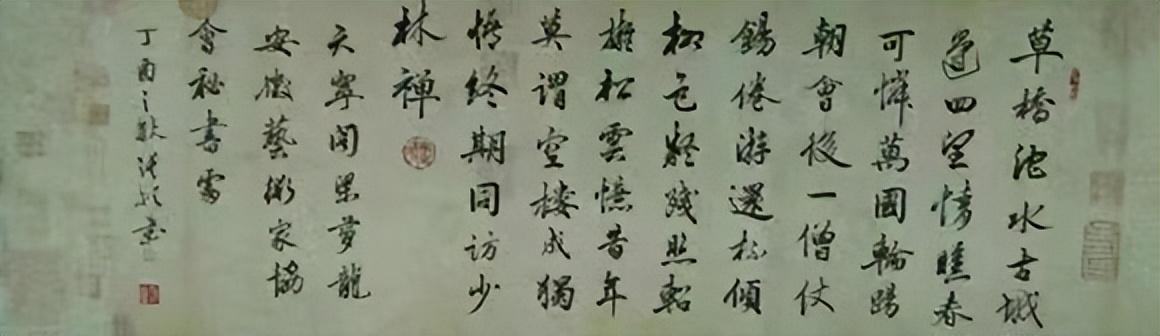 草橋池水古城
邊四望情春
可憐萬國輪蹄
朝會後一僧仗
錫倦游還傾
柳色殘照
擁松雲憶昔年
莫謂空樓成獨
悟終期同訪少
林禅
天寧閣梁夢龍
安徽藝術家協
會秘書
丁酉之秋書